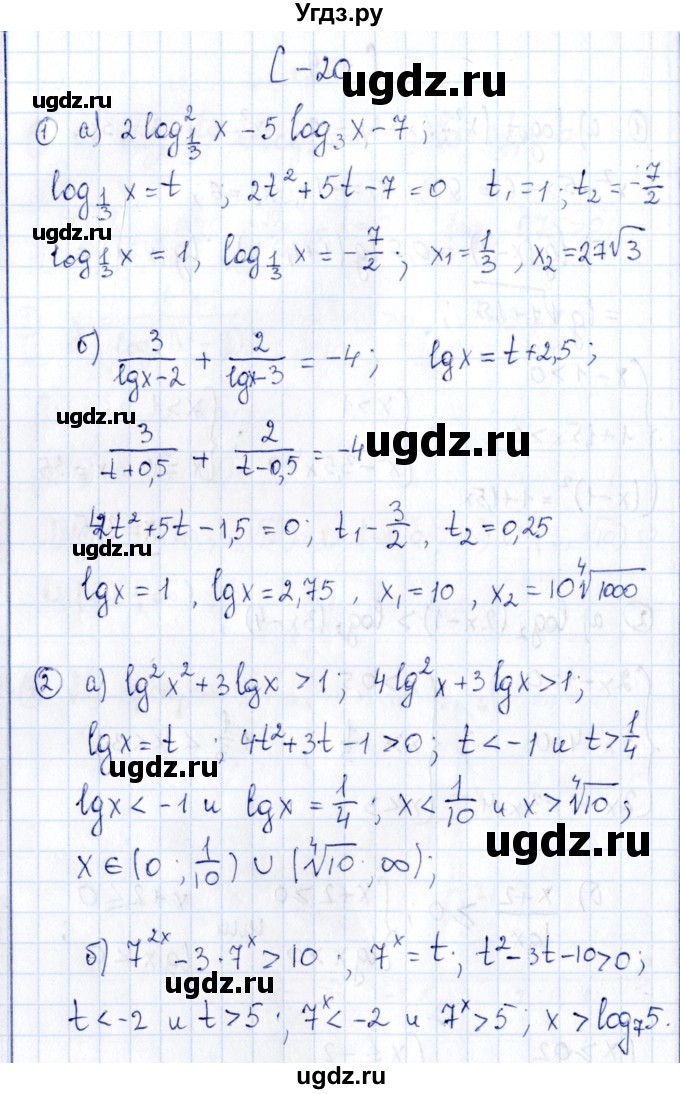 Угдз.ру
С-20
ugdz.ru
ugdz.ru
① а) 2log²_{1/3} x - 5 log₃x - 7;
log_{1/3} x = t ; 2t² + 5t - 7 = 0 t₁ = 1; t₂ = -7/2
ugdz.ru
log_{1/3} x = 1, log_{1/3} x = -7/2; x₁ = 1/3, x₂ = 27√3
б) 3/(lgx-2) + 2/(lgx-3) = -4; lgx = t+2,5;
ugdz.ru
3/(t+0,5) + 2/(t-0,5) = -4
ugdz.ru
4t² + 5t - 1,5 = 0; t₁ - 3/2, t₂ = 0,25
ugdz.ru
lgx = 1, lgx = 2,75, x₁ = 10, x₂ = 10⁴√1000
ugdz.ru
② а) lg²x² + 3lgx > 1; 4lg²x + 3lgx > 1;
lgx = t ; 4t² + 3t - 1 > 0; t < -1 и t > 1/4
ugdz.ru
lgx < -1 и lgx = 1/4; x < 1/10 и x > ⁴√10;
ugdz.ru
x ∈ (0; 1/10) ∪ (⁴√10; ∞);
б) 7^{2x} - 3·7^x > 10; 7^x = t; t² - 3t - 10 > 0;
ugdz.ru
t < -2 и t > 5; 7^x < -2 и 7^x > 5; x > log₇5.
ugdz.ru
ugdz.ru